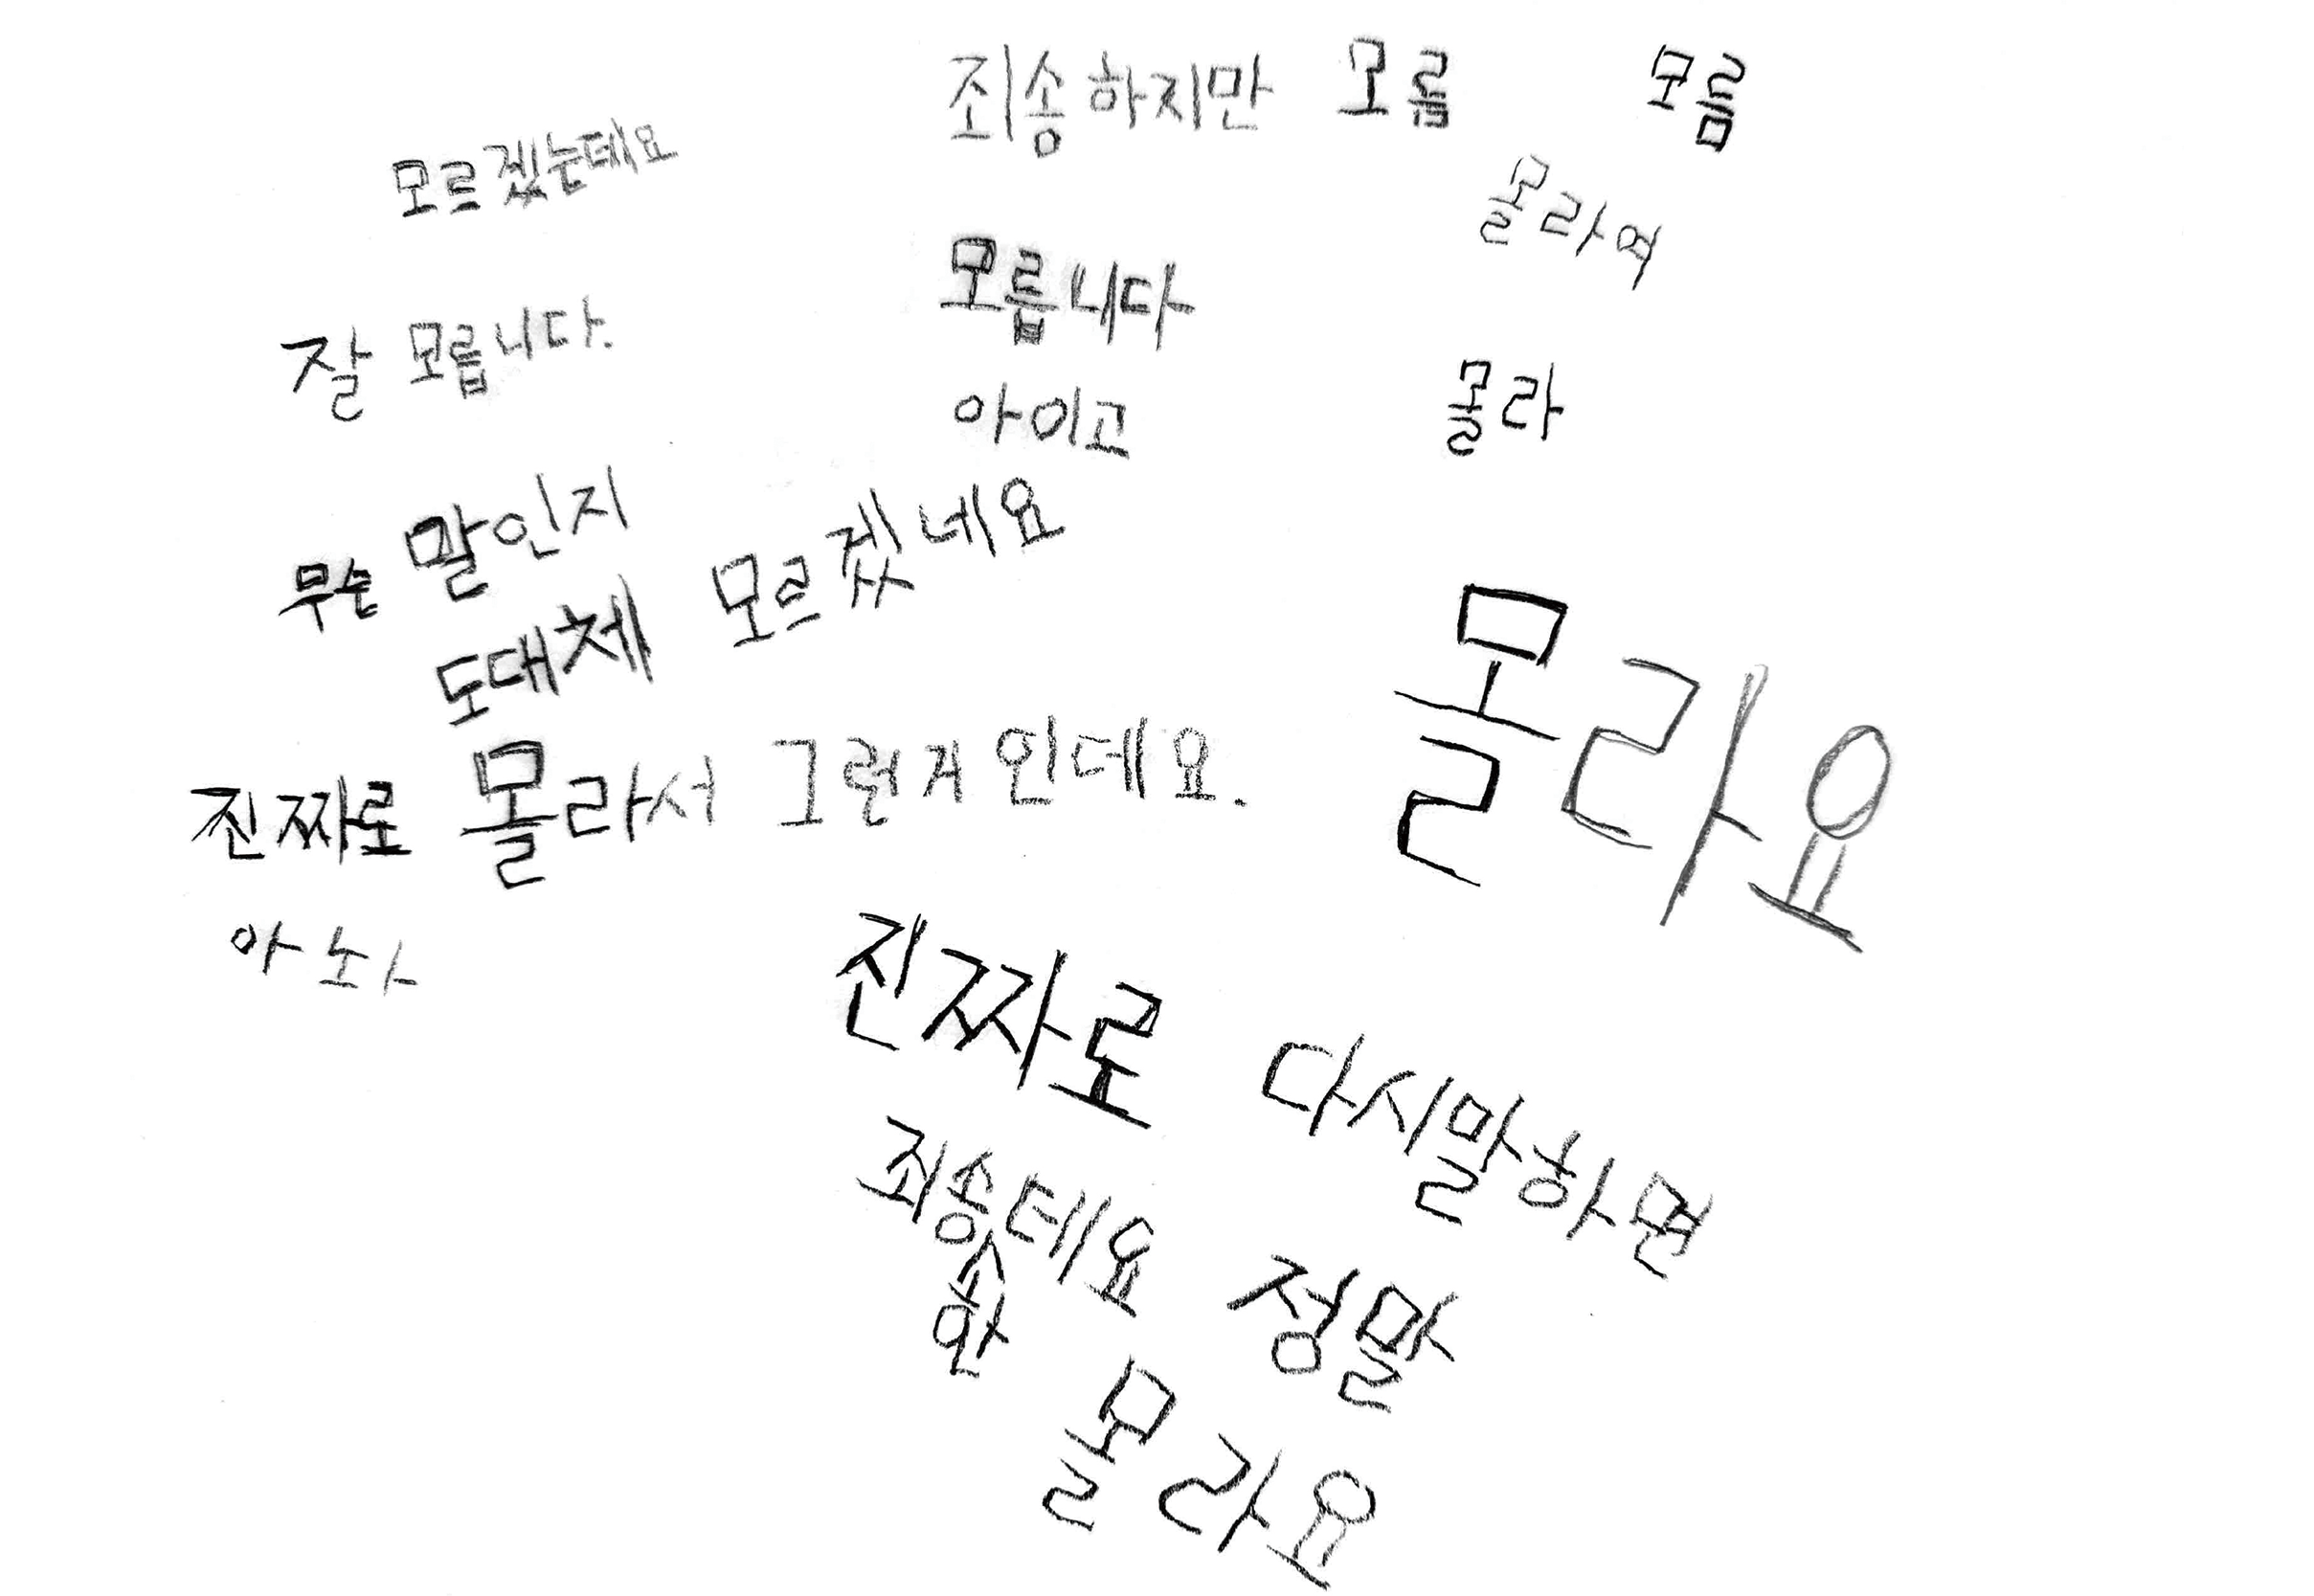 죄송하지만 모름
모름
모르겠는데요
몰라여
모릅니다
잘 모릅니다.
아이고
몰라
무슨 말인지
도대체 모르겠네요
몰라요
진짜로 몰라서 그런거인데요.
아놔
진짜로
다시말하면
죄송한데요
정말
몰라요